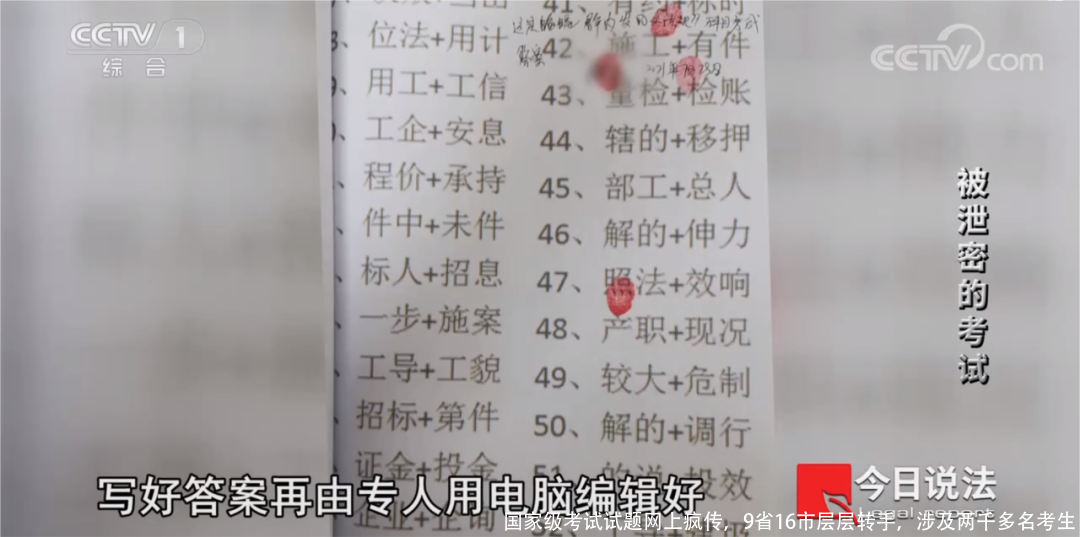 CCTV 1
综合
CCTV.com
位法+用计
用工+工信
工企+安息
程价+承持
件中+未件
标人+招息
一步+施案
工导+工貌
招标+第件
证金+投金
企业+企询
41、
42、施工+有件
43、重检+检账
44、辖的+移押
45、部工+总人
46、解的+伸力
47、照法+效响
48、产职+现况
49、较大+危制
50、解的+调行
51、的说+投效
2021年7月28日
被泄密的考试
写好答案再由专人用电脑编辑好
今日说法
Legal report
国家级考试试题网上疯传，9省16市层层转手，涉及两千多名考生